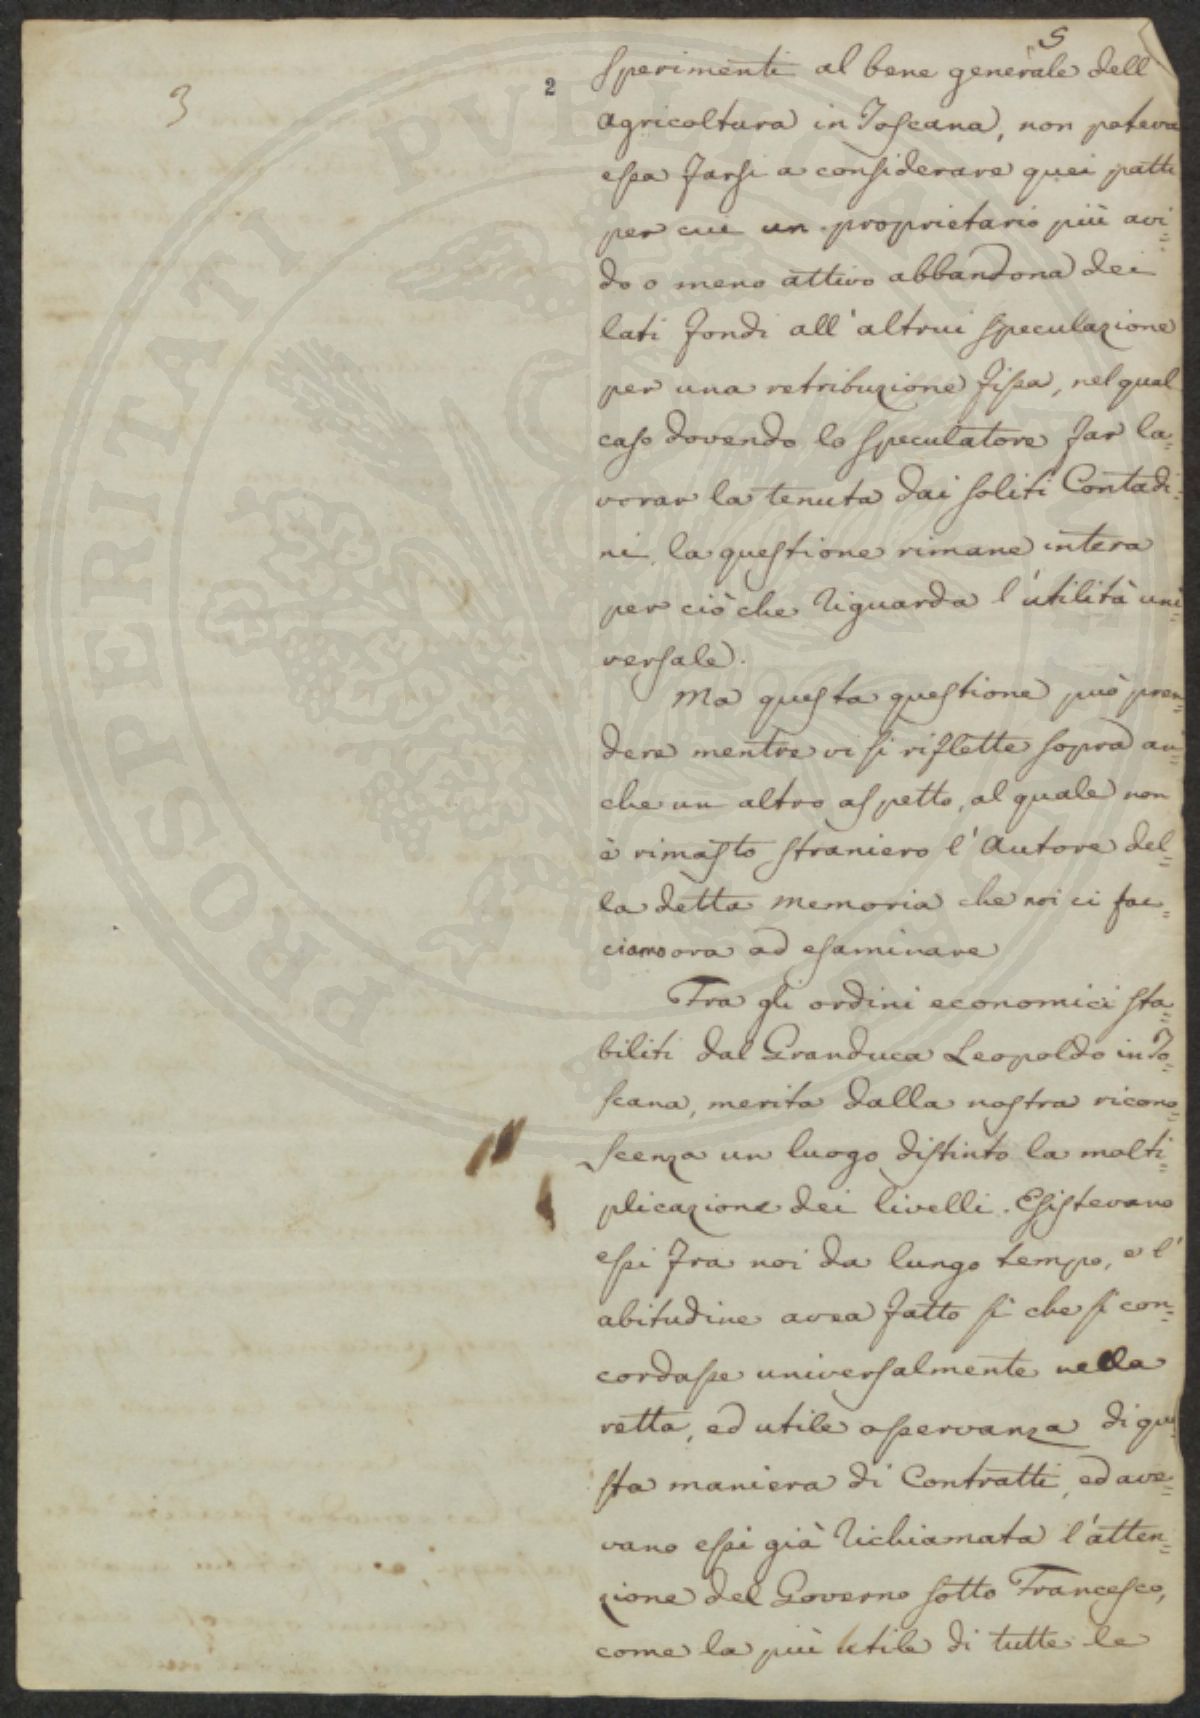 3
2
S
sperimenti al bene generale dell'
agricoltura in Toscana, non poteva
essa farsi a considerare quei patti
per cui un proprietario più avi=
do o meno attivo abbandona dei
lati fondi all'altrui speculazione
per una retribuzione fissa, nel qual
caso dovendo lo speculatore far la=
vorar la tenuta dai soliti Contadi=
ni, la questione rimane intera
per ciò che riguarda l'utilità uni=
versale.
Ma questa questione può pren=
dere mentre vi si riflette sopra an=
che un altro aspetto, al quale non
è rimasto straniero l'Autore del=
la detta memoria che noi ci fac=
ciamo ora ad esaminare
Tra gli ordini economici sta=
biliti dal Granduca Leopoldo in To=
scana, merita dalla nostra ricono=
scenza un luogo distinto la molti=
plicazione dei livelli. Esistevano
essi fra noi da lungo tempo, e l'
abitudine avea fatto sì che si con=
cordasse universalmente nella
retta, ed utile osservanza di que=
sta maniera di Contratti, ed ave=
vano essi già richiamata l'atten=
zione del Governo sotto Francesco,
come la più utile di tutte le
PROSPERITATI PVBLICAE